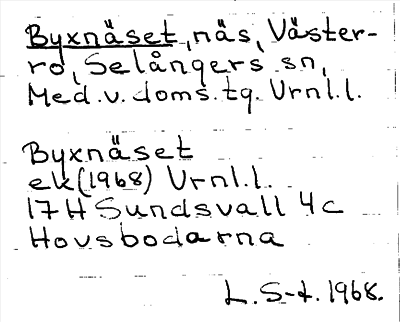 Byxnäset, näs, Väster-
ro, Selångers sn,
Med. v. doms. tg. Vrnl.l.
Byxnäset
ek (1968) Vrnl.l.
17H Sundsvall 4c
Hovsbodarna
L. S-t. 1968.